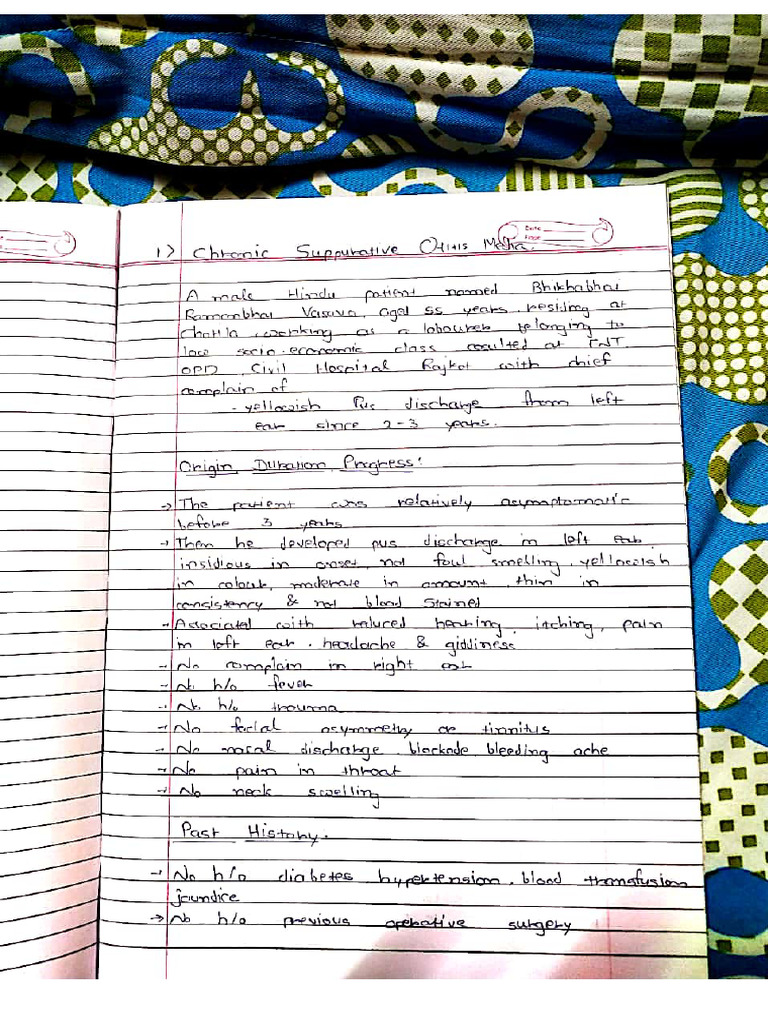 Date
Page
1) Chronic Suppurative Otitis Media.
A male Hindu patient named Bhikhabhai
Ramanbhai Vasava, aged 55 years, residing at
Chotila, working as a labourer belonging to
low socio-economic class consulted at ENT
OPD Civil Hospital Rajkot with chief
complain of
- yellowish Pus discharge from left
ear since 2-3 years.
Origin, Duration, Progress:
→ The patient was relatively asymptomatic
before 3 years
→ Then he developed pus discharge in left ear,
insidious in onset, not foul smelling, yellowish
in colour, moderate in amount, thin in
consistency & not blood stained
→ Associated with reduced hearing, itching, pain
in left ear, headache & giddiness
→ No complain in right ear
→ No h/o fever
→ No h/o trauma
→ No facial asymmetry or tinnitus
→ No nasal discharge, blockade, bleeding, ache
→ No pain in throat
→ No neck swelling
Past History.
→ No h/o diabetes hypertension, blood transfusion
jaundice
→ No h/o previous operative surgery